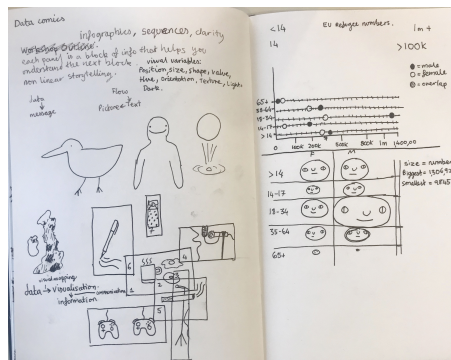 Data comics
infographics, sequences, clarity
Workshop Outline.
each panel is a block of info that helps you
understand the next block.
non linear storytelling.
visual variables:
Position, size, shape, value,
Hue, orientation, texture, light,
Dark.
message
Flow
Pictures Text
6
4
2
1
5
visual mapping
data → visualisation.
information
communication
<14
14
EU Refugee numbers.
1m +
>100k
= male
= female
= overlap
65+
35-64
18-34
14-17
>14
0 100k 200k 500k 800k 1m
F M
>14
14-17
18-34
35-64
65+
size = number
Biggest =
smallest =